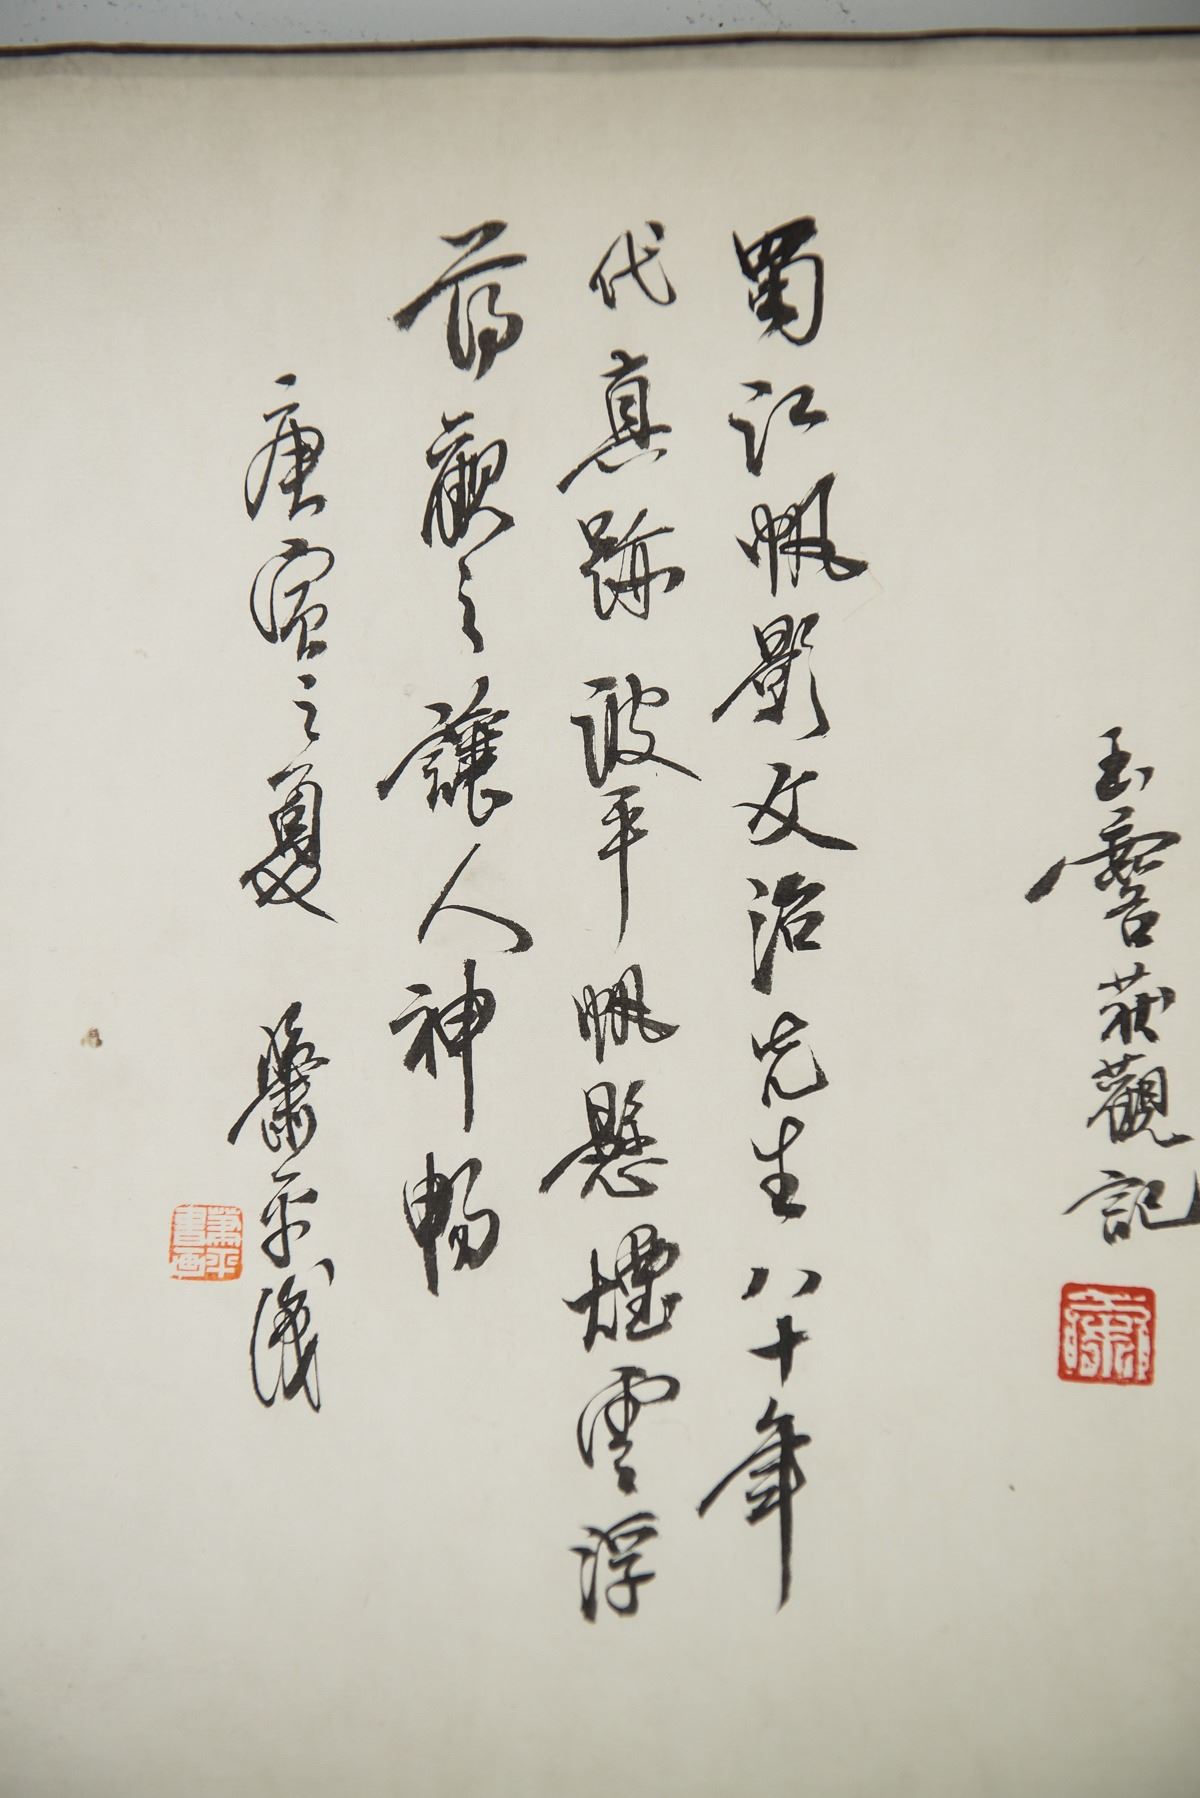 玉霤获觀記
蜀江帆影文治先生八十年
代真跡波平帆懸煙雲浮
蕩觀之讓人神暢
庚寅之夏 蕭平識
蕭平
書画